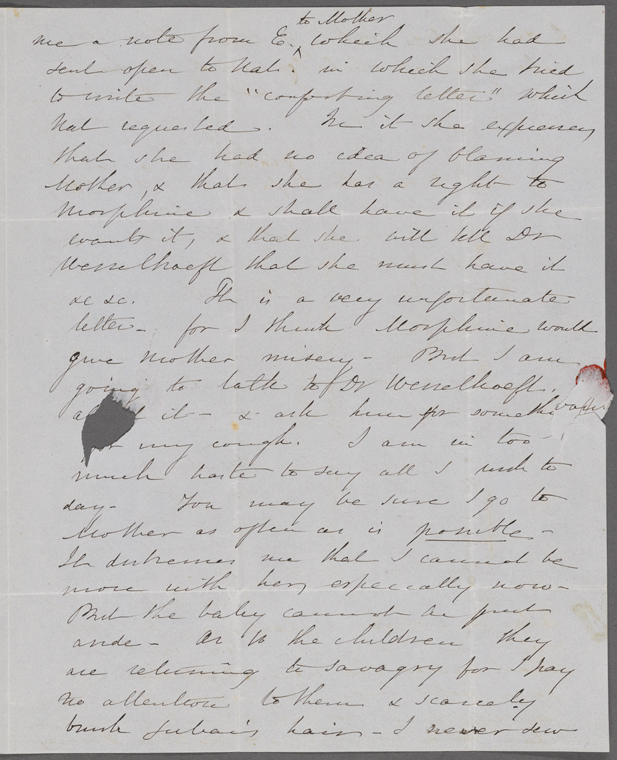 to Mother
me a note from E. ^ which she had
sent open to Nat. in which she tried
to write the "comforting letter" which
Nat requested. In it she expresses
that she had no idea of blaming
Mother, & that she has a right to
Morphine & shall have it if she
wants it, & that she will tell Dr
Wesselhoeft that she must have it
&c &c. It is a very unfortunate
letter - for I think Morphine would
give Mother misery - But I am
going to talk to Dr Wesselhoeft.
it - & ask him for
my cough. I am in too
much haste to say all I wish to
day - You may be sure I go to
Mother as often as is possible -
It distresses me that I cannot be
more with her, especially now -
But the baby cannot be put
aside - As to the children they
are returning to savagry for I pay
no attention to them & scarcely
brush Julian's hair - I never sew